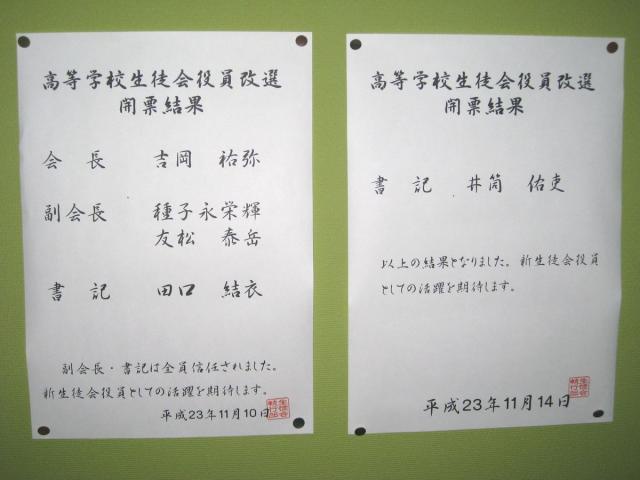 高等学校生徒会役員改選
開票結果
会長 吉岡 祐弥
副会長 種子永栄輝
友松 泰岳
書記 田口 結衣
副会長・書記は全員信任されました。
新生徒会役員としての活躍を期待します。
平成23年11月10日
高等学校生徒会役員改選
開票結果
書記 井筒 佑吏
以上の結果となりました。新生徒会役員
としての活躍を期待します。
平成23年11月14日